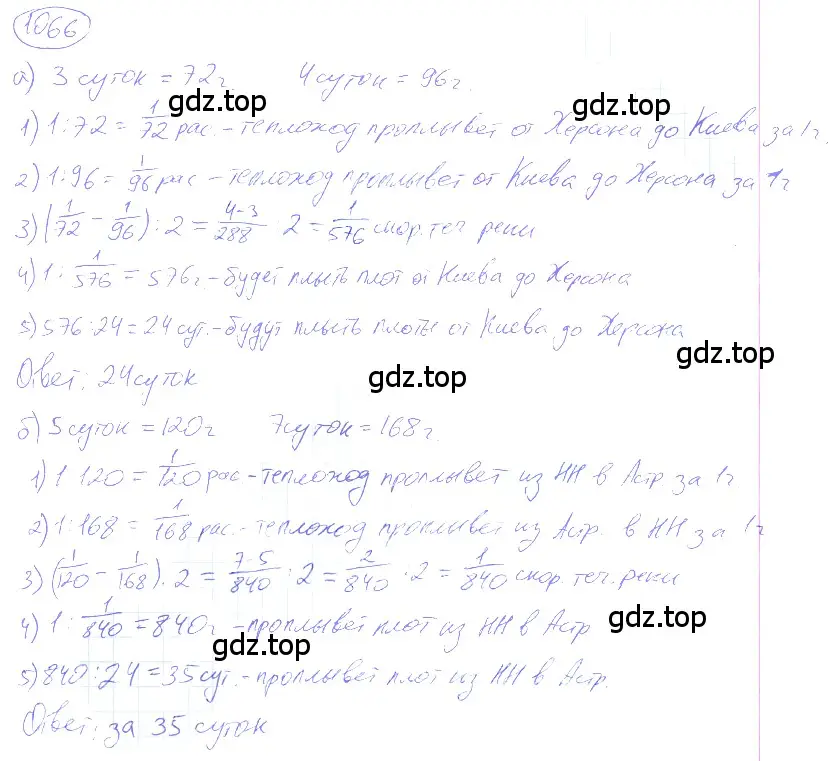 1066
а) 3 суток = 72г. 4 суток = 96г.
gdz.top gdz.top
1) 1:72 = 1/72 рас. - теплоход проплывет от Херсона до Киева за 1г.
2) 1:96 = 1/96 рас - теплоход проплывет от Киева до Херсона за 1г
3) (1/72 - 1/96) : 2 = 4-3/288 : 2 = 1/576 скор. теч реки
4) 1 : 1/576 = 576г - будет плыть плот от Киева до Херсона
5) 576:24 = 24 сут. - будут плыть плоты от Киева до Херсона
gdz.top
Ответ: 24 суток
gdz.top
б) 5 суток = 120г 7 суток = 168г.
1) 1 120 = 1/120 рас - теплоход проплывет из НН в Астр за 1г
2) 1:168 = 1/168 рас. - теплоход проплывет из Астр. в НН за 1г
3) (1/120 - 1/168) : 2 = 7-5/840 : 2 = 2/840 : 2 = 1/840 скор. теч. реки
4) 1 : 1/840 = 840г - проплывет плот из НН в Астр
gdz.top gdz.top
5) 840:24 = 35 сут. - проплывет плот из НН в Астр.
Ответ: за 35 суток